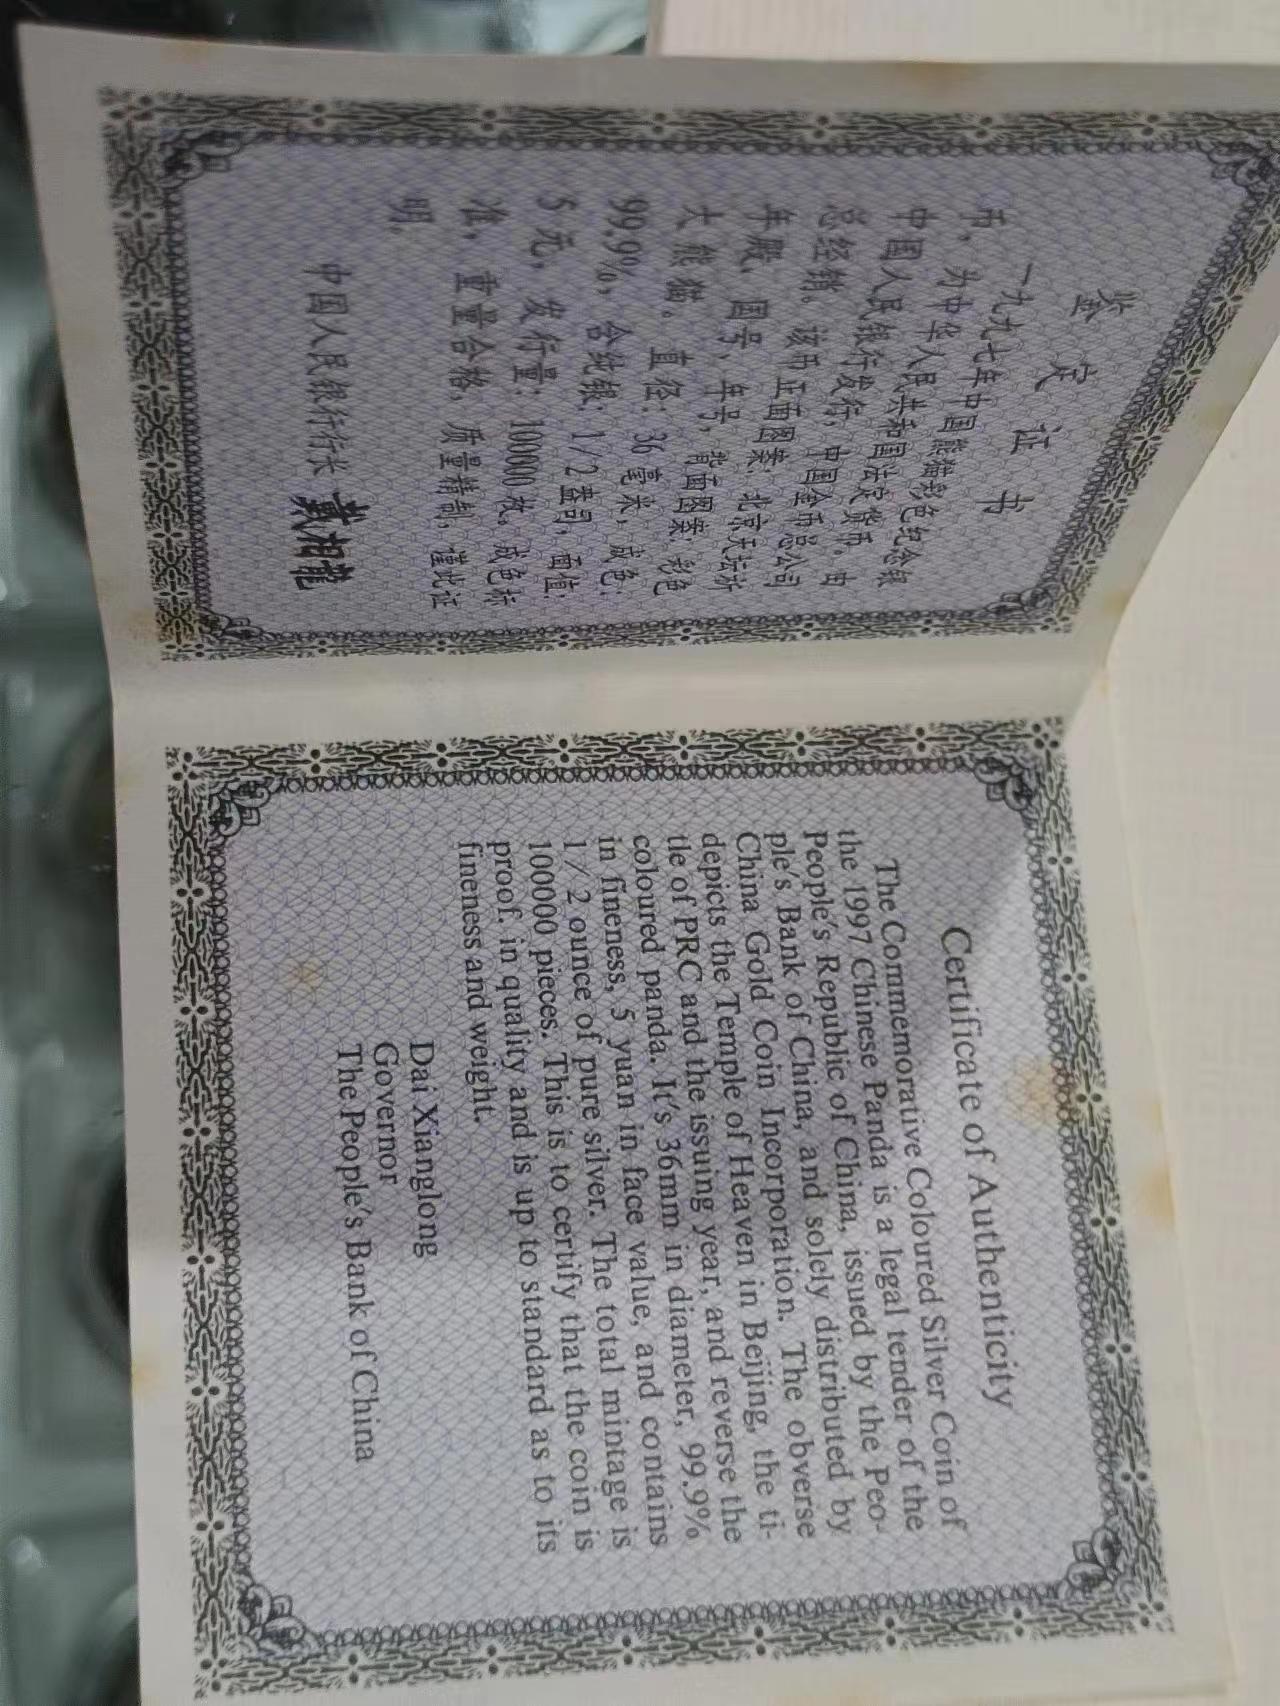 鉴定证书
一九九七年中国熊猫彩色纪念银
币，为中华人民共和国法定货币。由
中国人民银行发行，中国金币总公司
总经销。该币正面图案：北京天坛祈
年殿、国号，年号，背面图案：彩色
大熊猫。直径：36毫米，成色：
99.9%，含纯银：1/2盎司，面值：
5元，发行量：100000枚。成色标
准，重量合格，质量精制，谨此证
明。
中国人民银行行长 戴相龙
Certificate of Authenticity
The Commemorative Coloured Silver Coin of
the 1997 Chinese Panda is a legal tender of the
People's Republic of China, issued by the Peo-
ple's Bank of China, and solely distributed by
China Gold Coin Incorporation. The obverse
depicts the Temple of Heaven in Beijing, the ti-
tle of PRC and the issuing year, and reverse the
coloured panda. It's 36mm in diameter, 99.9%
in fineness, 5 yuan in face value, and contains
1/2 ounce of pure silver. The total mintage is
100000 pieces. This is to certify that the coin is
proof. in quality and is up to standard as to its
fineness and weight.
Dai Xianglong
Governor
The People's Bank of China